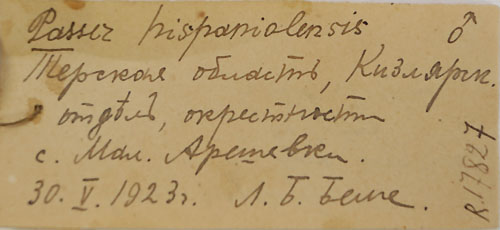 Passer hispaniolensis ♂
Терская область, Кизлярск.
отдѣлъ, окрестности
с. Мал. Арешевки.
30. V. 1923г. Л. Б. Беме.
R 17827